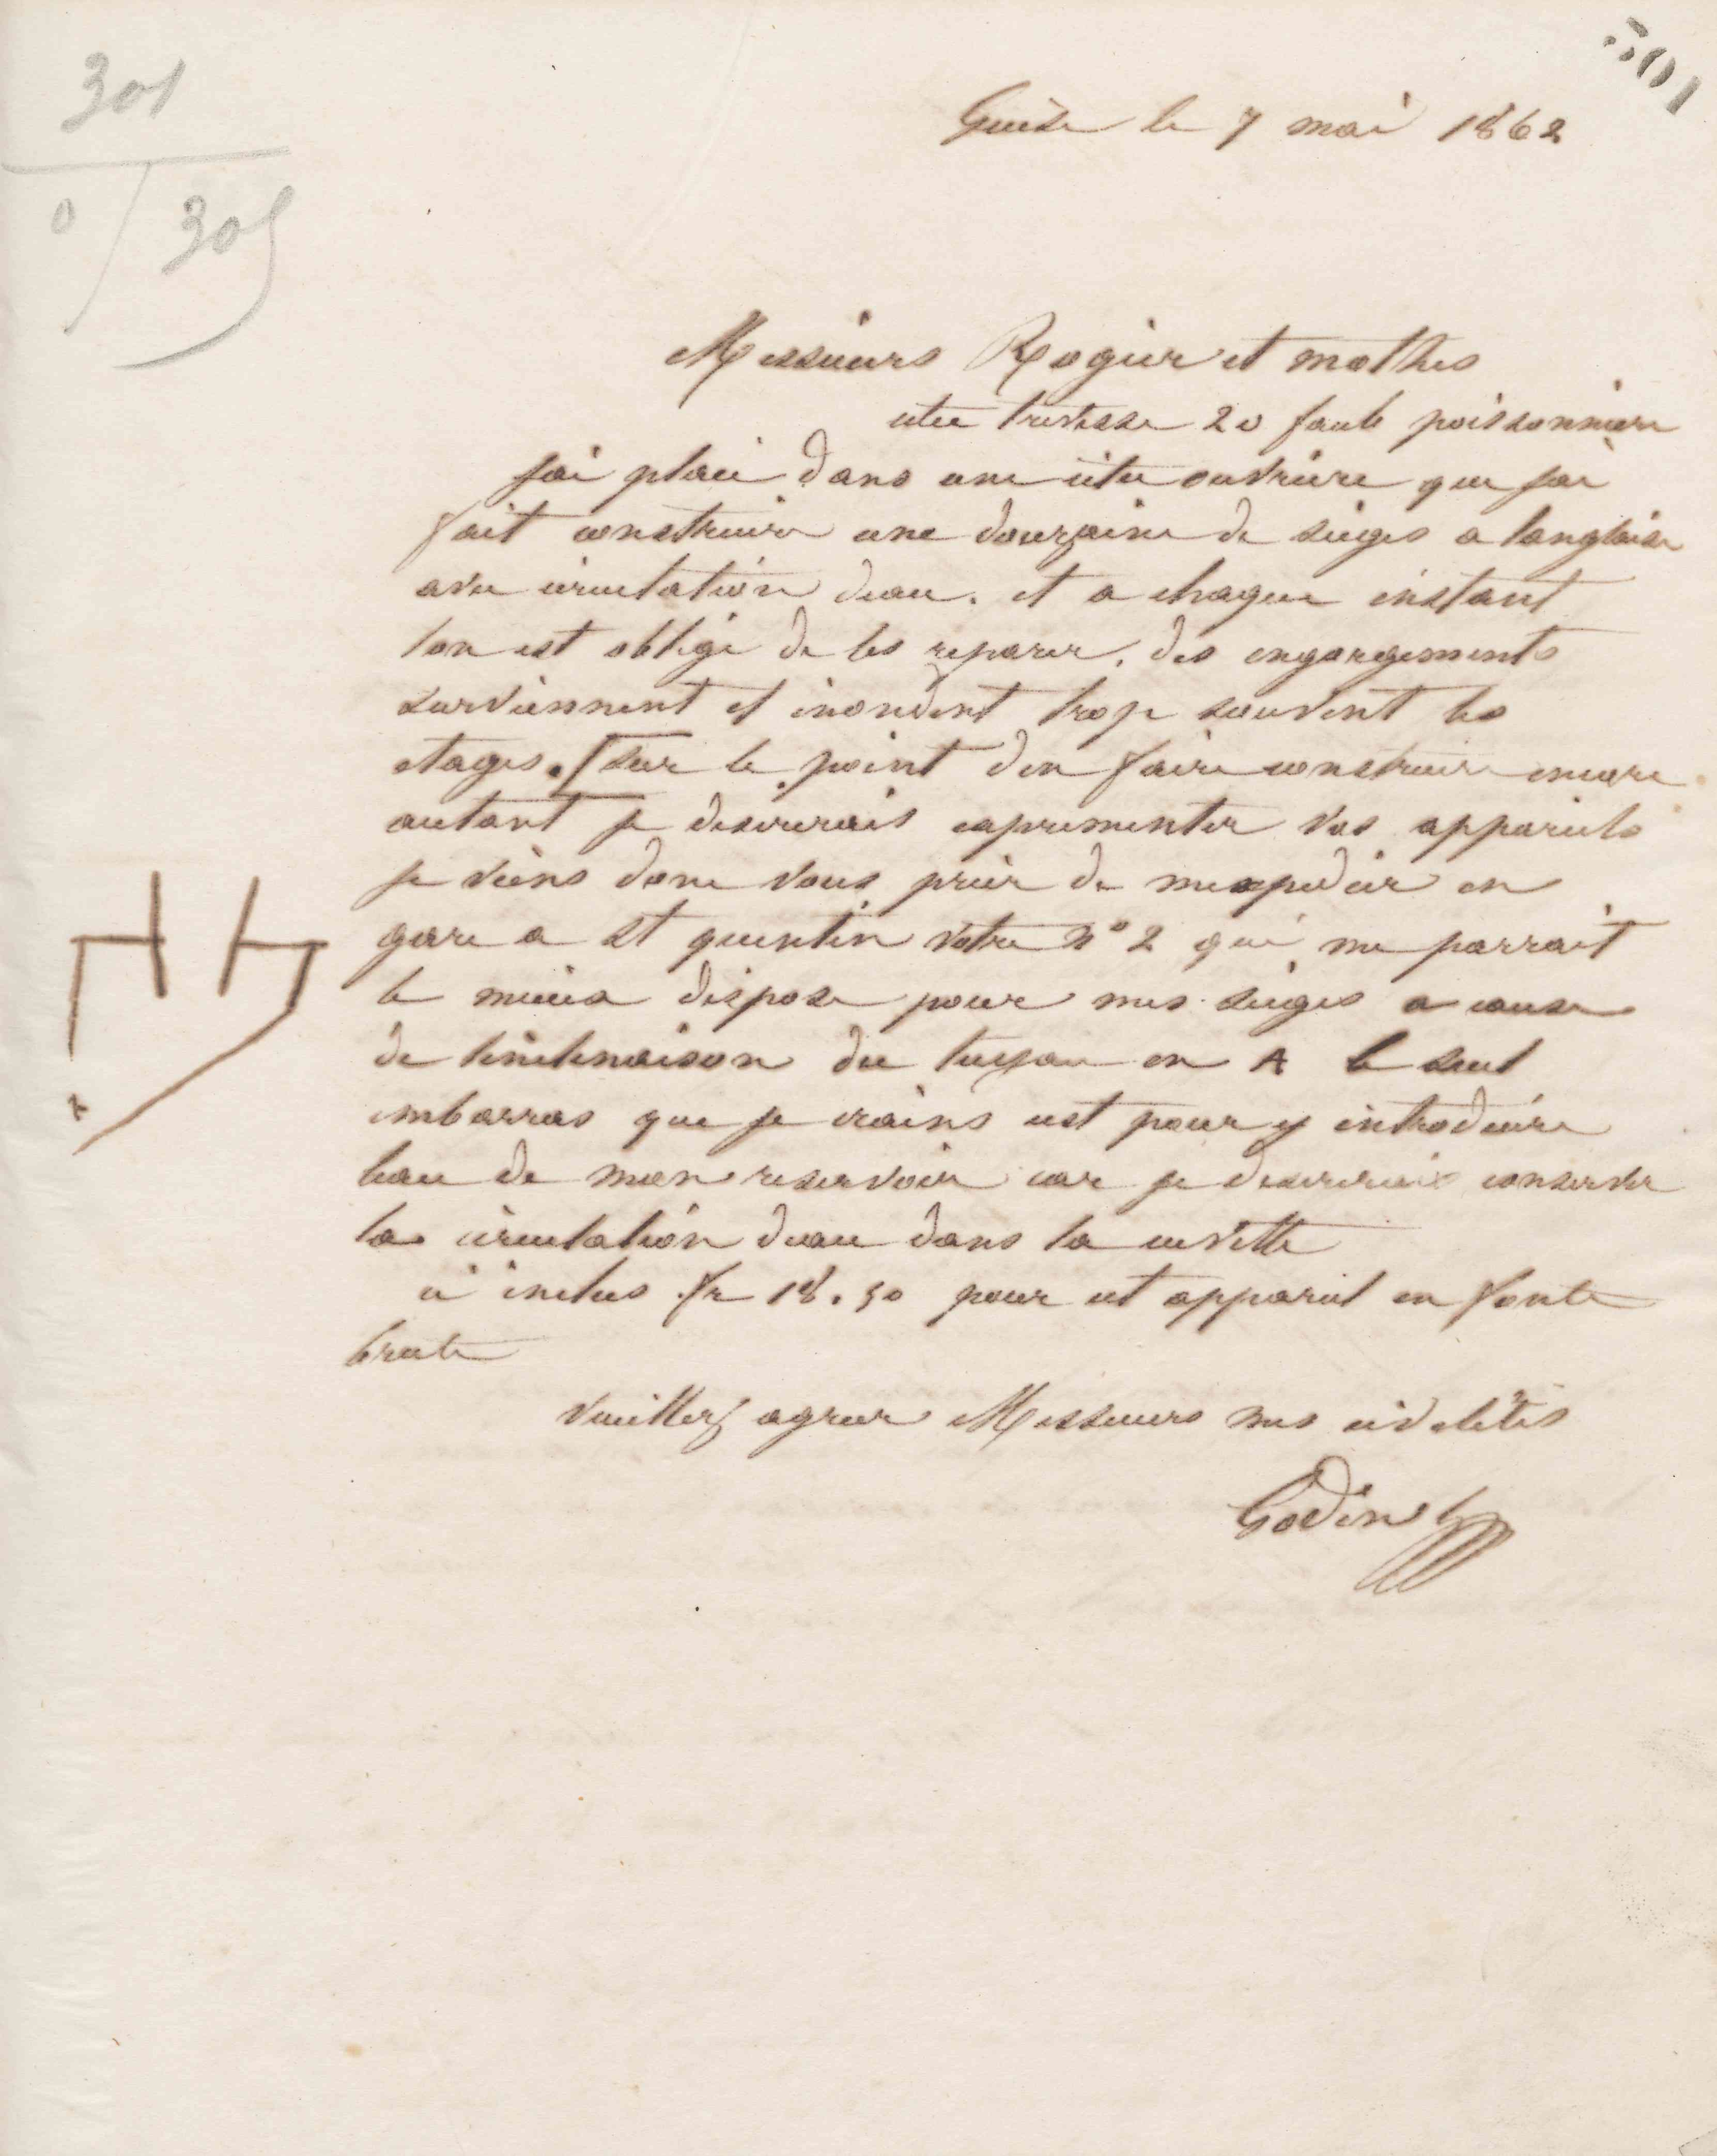 301
301
0 305
Guise le 7 mai 1862
Messieurs Rogier et mothes
citee trevisse 20 faub poissonniere
jai placé dans une citee ouvriere que jai
fait construire une douzaine de sieges a langlaise
avec circulation deau. et a chaque instant
lon est obligé de les reparer. des engorgements
surviennent et inondent trop souvent les
etages. [sur le point den faire construire encore
autant je desirerais experimenter vos appareils
je viens donc vous prier de mexpedier en
gare a St quentin votre N° 2 qui me parrait
le mieux disposé pour mes sieges a cause
de linclinaison du tuyau en A le seul
embarras que je crains est pour y introduire
leau de mon reservoir car je desirerais conserver
la circulation deau dans la cuvette
ci inclus fr 18.50 pour cet appareil en fonte
brute
veuillez agreer Messieurs mes civilités
Godin
A